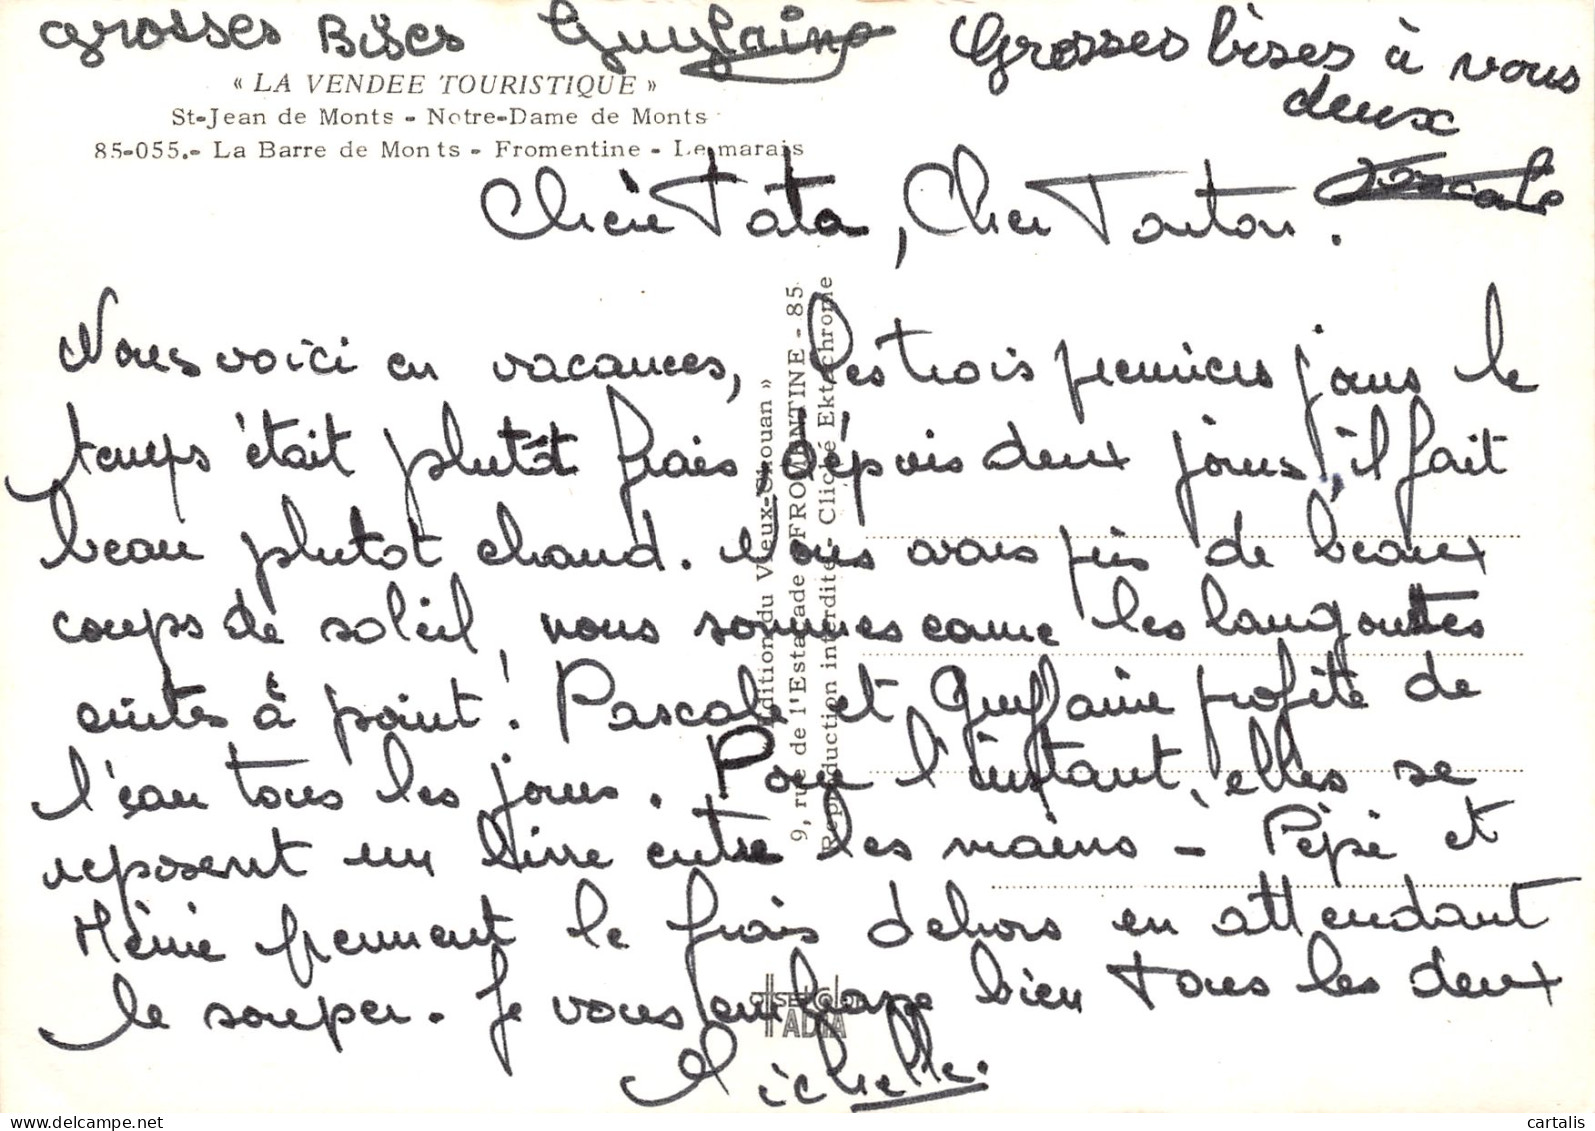 grosses Bises Guylaine
Grosses bises à vous
deux
Pascale
« LA VENDEE TOURISTIQUE »
St-Jean de Monts - Notre-Dame de Monts
85-055.- La Barre de Monts - Fromentine - Le marais
Chère Tata, Cher Tonton.
Nous voici en vacances, les trois premiers jours le
temps était plutôt frais, depuis deux jours, il fait
beau plutot chaud. Nous avons pris de beaux
coups de soleil, nous sommes come les langoustes
cuites à point! Pascale et Guylaine profite de
l'eau tous les jours. Pour l'instant, elles se
reposent un livre entre les mains - Pépé et
Mémé prennent le frais dehors en attendant
le souper. Je vous embrasse bien tous les deux
Michelle.
Edition du Vieux-Chouan »
9, rue de l'Estacade - FROMENTINE - 85
Reproduction interdite - Cliché Ektachrome
ADIA
cartalis